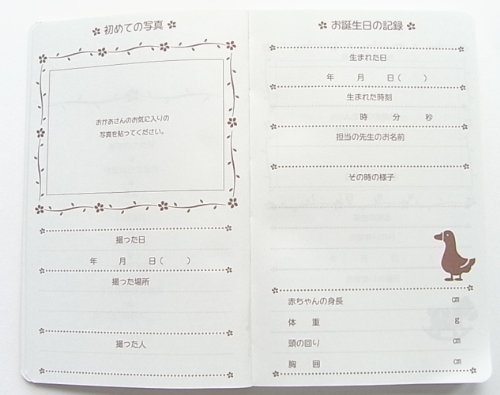 初めての写真
おかあさんのお気に入りの
写真を貼ってください。
撮った日
年 月 日( )
撮った場所
撮った人
お誕生日の記録
生まれた日
年 月 日( )
生まれた時刻
時 分 秒
担当の先生のお名前
その時の様子
赤ちゃんの身長 cm
体 重 g
頭の回り cm
胸 囲 cm